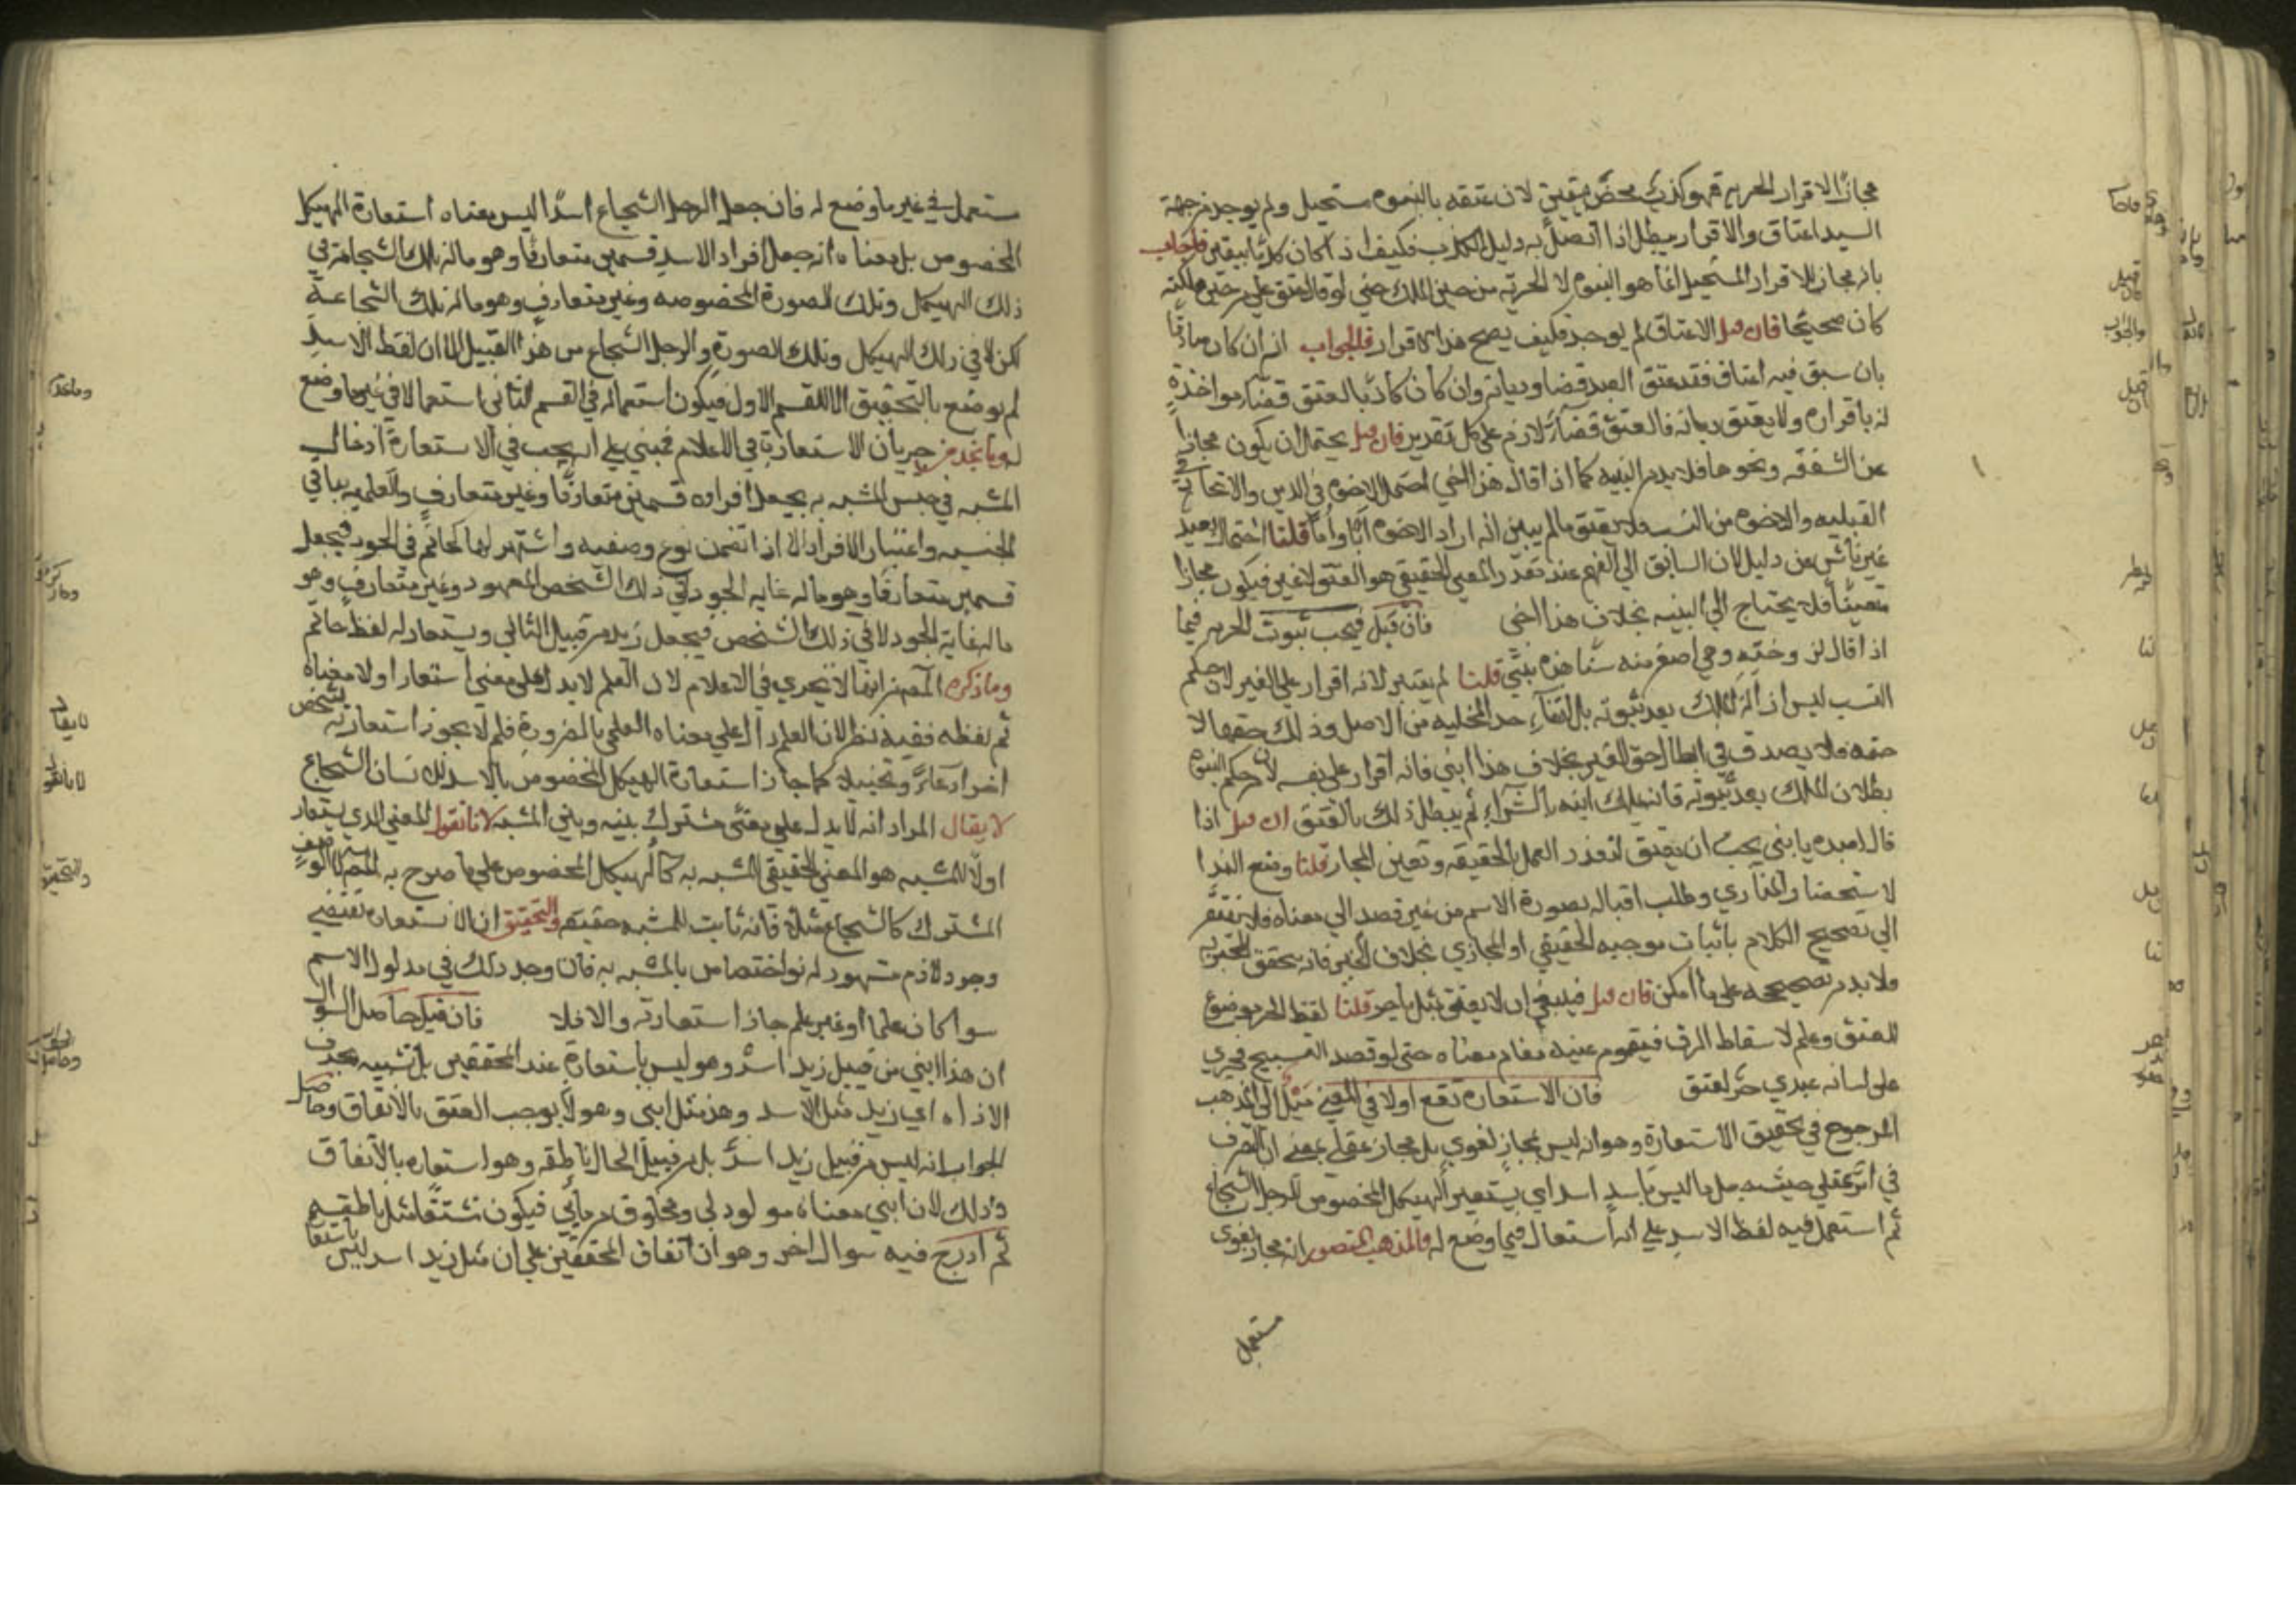 مجازا لاقرار الحريه فهو كذب محض بيقين لان عتقه بالبنوه مستحيل ولم يوجد من جهة
السيد اعتاق والاقرار يبطل اذا اتصل به دليل الكذب فكيف اذا كان كذبا بيقين فاجاب
بانه مجاز للاقرار المستحيل انما هو البنوه لا الحرية من حين الملك حتى لو قال عتق علي من حين ملكته
كان صحيحا فان قيل الاعتاق لم يوجد فكيف يصح هذا الاقرار فالجواب انه ان كان صادقا
بان سبق فيه اعتاق فقد عتق العبد قضا وديانه وان كان كاذبا بالعتق قضا مواخذة
له باقراره ولا يعتق ديانه فالعتق قضآء لازم على كل تقدير فان قيل يحتمل ان يكون مجازا
عن الشفقه ونحوها فلا بد من النيه كما اذا قال هذا اخي احتمل الاخوه في الدين والاتحاد في
القبيله والاخوه من النسب فلا يعتق مالم يبين انه اراد الاخوه ابا واما قلنا احتمال بعيد
غير ناش عن دليل لان السابق الى الفهم عند تعذر المعنى الحقيقي هو العتق لا غير فيكون مجازا
متعينا فلا يحتاج الي النيه بخلاف هذا اخي فان قيل فيجب ثبوت الحرمه فيما
اذا قال لزوجته وهي اصغر منه سنا هذه بنتي قلنا لم يعتبر لانه اقرار على الغير لان حكم
النسب ليس ازالة الملك بعد ثبوته بل انتفآء حل المحليه من الاصل وذلك حقها لا
حقه فلا يصدق في ابطال حق الغير بخلاف هذا ابني فانه اقرار على نفسه لان حكم البنوه
بطلان الملك بعد ثبوته فانه يملك ابنه بالشرآء ثم يبطل ذلك بالعتق فان قيل اذا
قال لعبده يا بني يجب ان يعتق لتعذر العمل بالحقيقه وتعين المجاز قلنا وضع الندا
لاستحضار المنادي وطلب اقباله بصورة الاسم من غير قصد الي معناه فلا يفتقر
الي تصحيح الكلام باثبات موجبه الحقيقي او المجازي بخلاف الخبر فانه يحقق المخبر به
فلا بد من تصحيحه على ما امكن فان قيل فينبغي ان لا يعتق بمثل يا حر قلنا لفظ الحر موضوع
للعتق وعلم لاسقاط الرق فيقوم عينه مقام معناه حتى لو قصد التسبيح فجري
على لسانه عبدي حر لعتق فان الاستعاره تقع اولا في المعنى ميل الى المذهب
المرجوح في تحقيق الاستعارة وهو انه ليس بمجاز لغوي بل مجاز عقلى بمعنى ان التصرف
في امر عقلي حيث جعل ما ليس باسد اسدا اي يستعير الهيكل المخصوص للرجل الشجاع
ثم استعمل فيه لفظ الاسد على انه استعمال فيما وضع له والمذهب المنصور انه مجاز لغوي
مستعمل
مستعمل في غير ما وضع له فان جعل الرجل الشجاع اسدا ليس معناه استعارة الهيكل
المخصوص بل معناه انه جعل افراد الاسد قسمين متعارفا وهو ماله تلك الشجاعة في
ذلك الهيكل وتلك الصورة المخصوصه وغير متعارف وهو ماله تلك الشجاعة
لكن لا في ذلك الهيكل وتلك الصورة والرجل الشجاع من هذا القبيل الا ان لفظ الاسد
لم يوضع بالتحقيق الا للقسم الاول فيكون استعماله في القسم الثاني استعمالا في غير ما وضع
له جريان الاستعارة في الاعلام فمبني علي انه يجب في الاستعارة ادخال
المشبه في جنس المشبه به بجعل افراده قسمين متعارفا وغير متعارف والعلميه ينافي
الجنسيه واعتبار الافراد الا اذا تضمن نوع وصفيه واشتهر بها كحاتم في الجود فيجعل
قسمين متعارفا وهو ماله غايه الجود في ذلك الشخص المعهود وغير متعارف وهو
ماله غاية الجود لا في ذلك الشخص فيجعل زيد من قبيل الثاني ويستعار له لفظ حاتم
وما ذكره المص من انها لا تجري في الاعلام لان العلم لا يدل على معنى استعار اولا معناه
ثم لفظه ففيه نظر لان العلم دال على معناه العلمي بالضرورة فلم لا يجوز استعارته لشخص
اخر ادعاءً وتخييلا كما جاز استعارة الهيكل المخصوص بالاسد للانسان الشجاع
لا يقال المراد انه لا يدل على معنى مشترك بينه وبين المشبه لانا نقول المعنى الذي يستعار
اولا للمشبه هو المعنى الحقيقي للمشبه به كالهيكل المخصوص على ما صرح به المص لا الوصف
المشترك كالشجاع مثلا فانه ثابت للمشبه حقيقه والتحقيق ان الاستعاره تقتضي
وجود لازم مشهور له نوع اختصاص بالمشبه به فان وجد ذلك في مدلول الاسم
سوا كان علما او غير علم جاز استعارته والا فلا فان قيل حاصل السوال
ان هذا ابني من قبيل زيد اسد وهو ليس باستعارة عند المحققين بل تشبيه بحذف
الاداه اي زيد مثل الاسد وهذ مثل ابني وهو لا يوجب العتق بالاتفاق وحاصل
الجواب انه ليس من قبيل زيد اسد بل من قبيل الحال ناطقه وهو استعاره بالاتفاق
وذلك لان ابني معناه مولود لي ومخلوق من مايي فيكون مشتقا مثل ناطقه
ثم ادرج فيه سوال اخر وهو ان اتفاق المحققين على ان مثل زيد اسد ليس باستعا